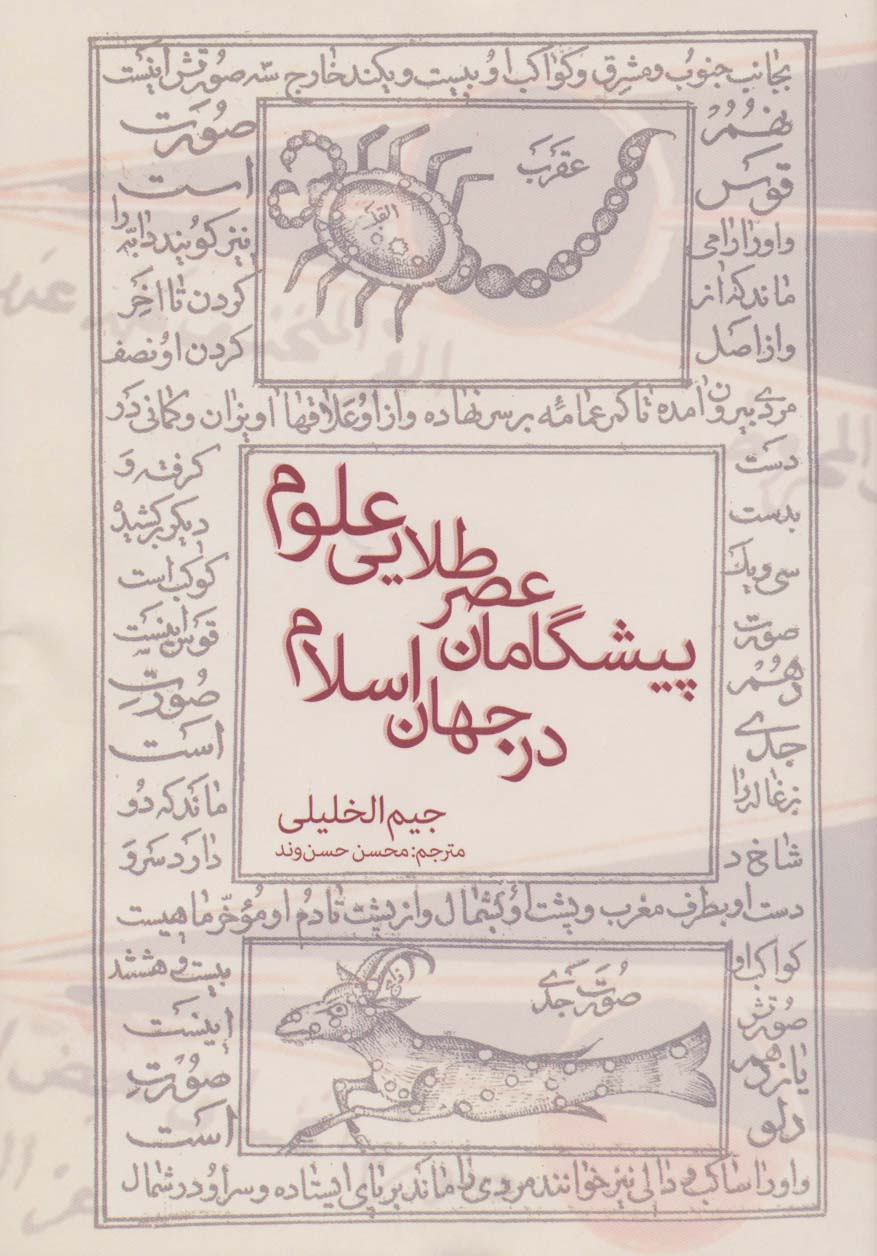 بجانب جنوب و مشرق و کواکب او بیست و یکند خارج سه صورتش اینست
نهم صورت
قوس است
و او را رامی نیز کویند دابه را
ماند که از کردن تا اخر
و از اصل کردن او نصف
عقرب
القلب
مردی بیرون امده تا کمر عمامه بر سر نهاده و از او علاقها اویزان و کمانی در
دست کرفته و
بدست دیکر کشیده
سی و یک کوکب است
صورت قوس اینست
دهم صورت
جدی است
بزغاله را ماند که دو
شاخ دارد سر و
علوم
طلایی
عصر
پیشگامان
اسلام
جهان
در
جیم الخلیلی
مترجم: محسن حسن‌وند
دست او بطرف مغرب و پشت او بشمال و از پشت تا دم او مؤخر ماهیست
کواکب او بیست و هشتند
صورتش اینست
یازدهم صورت
دلو است
صورت جدی
و او را ساکب و دالی نیز خوانند مردی را ماند بر پای ایستاده و سر او در شمال